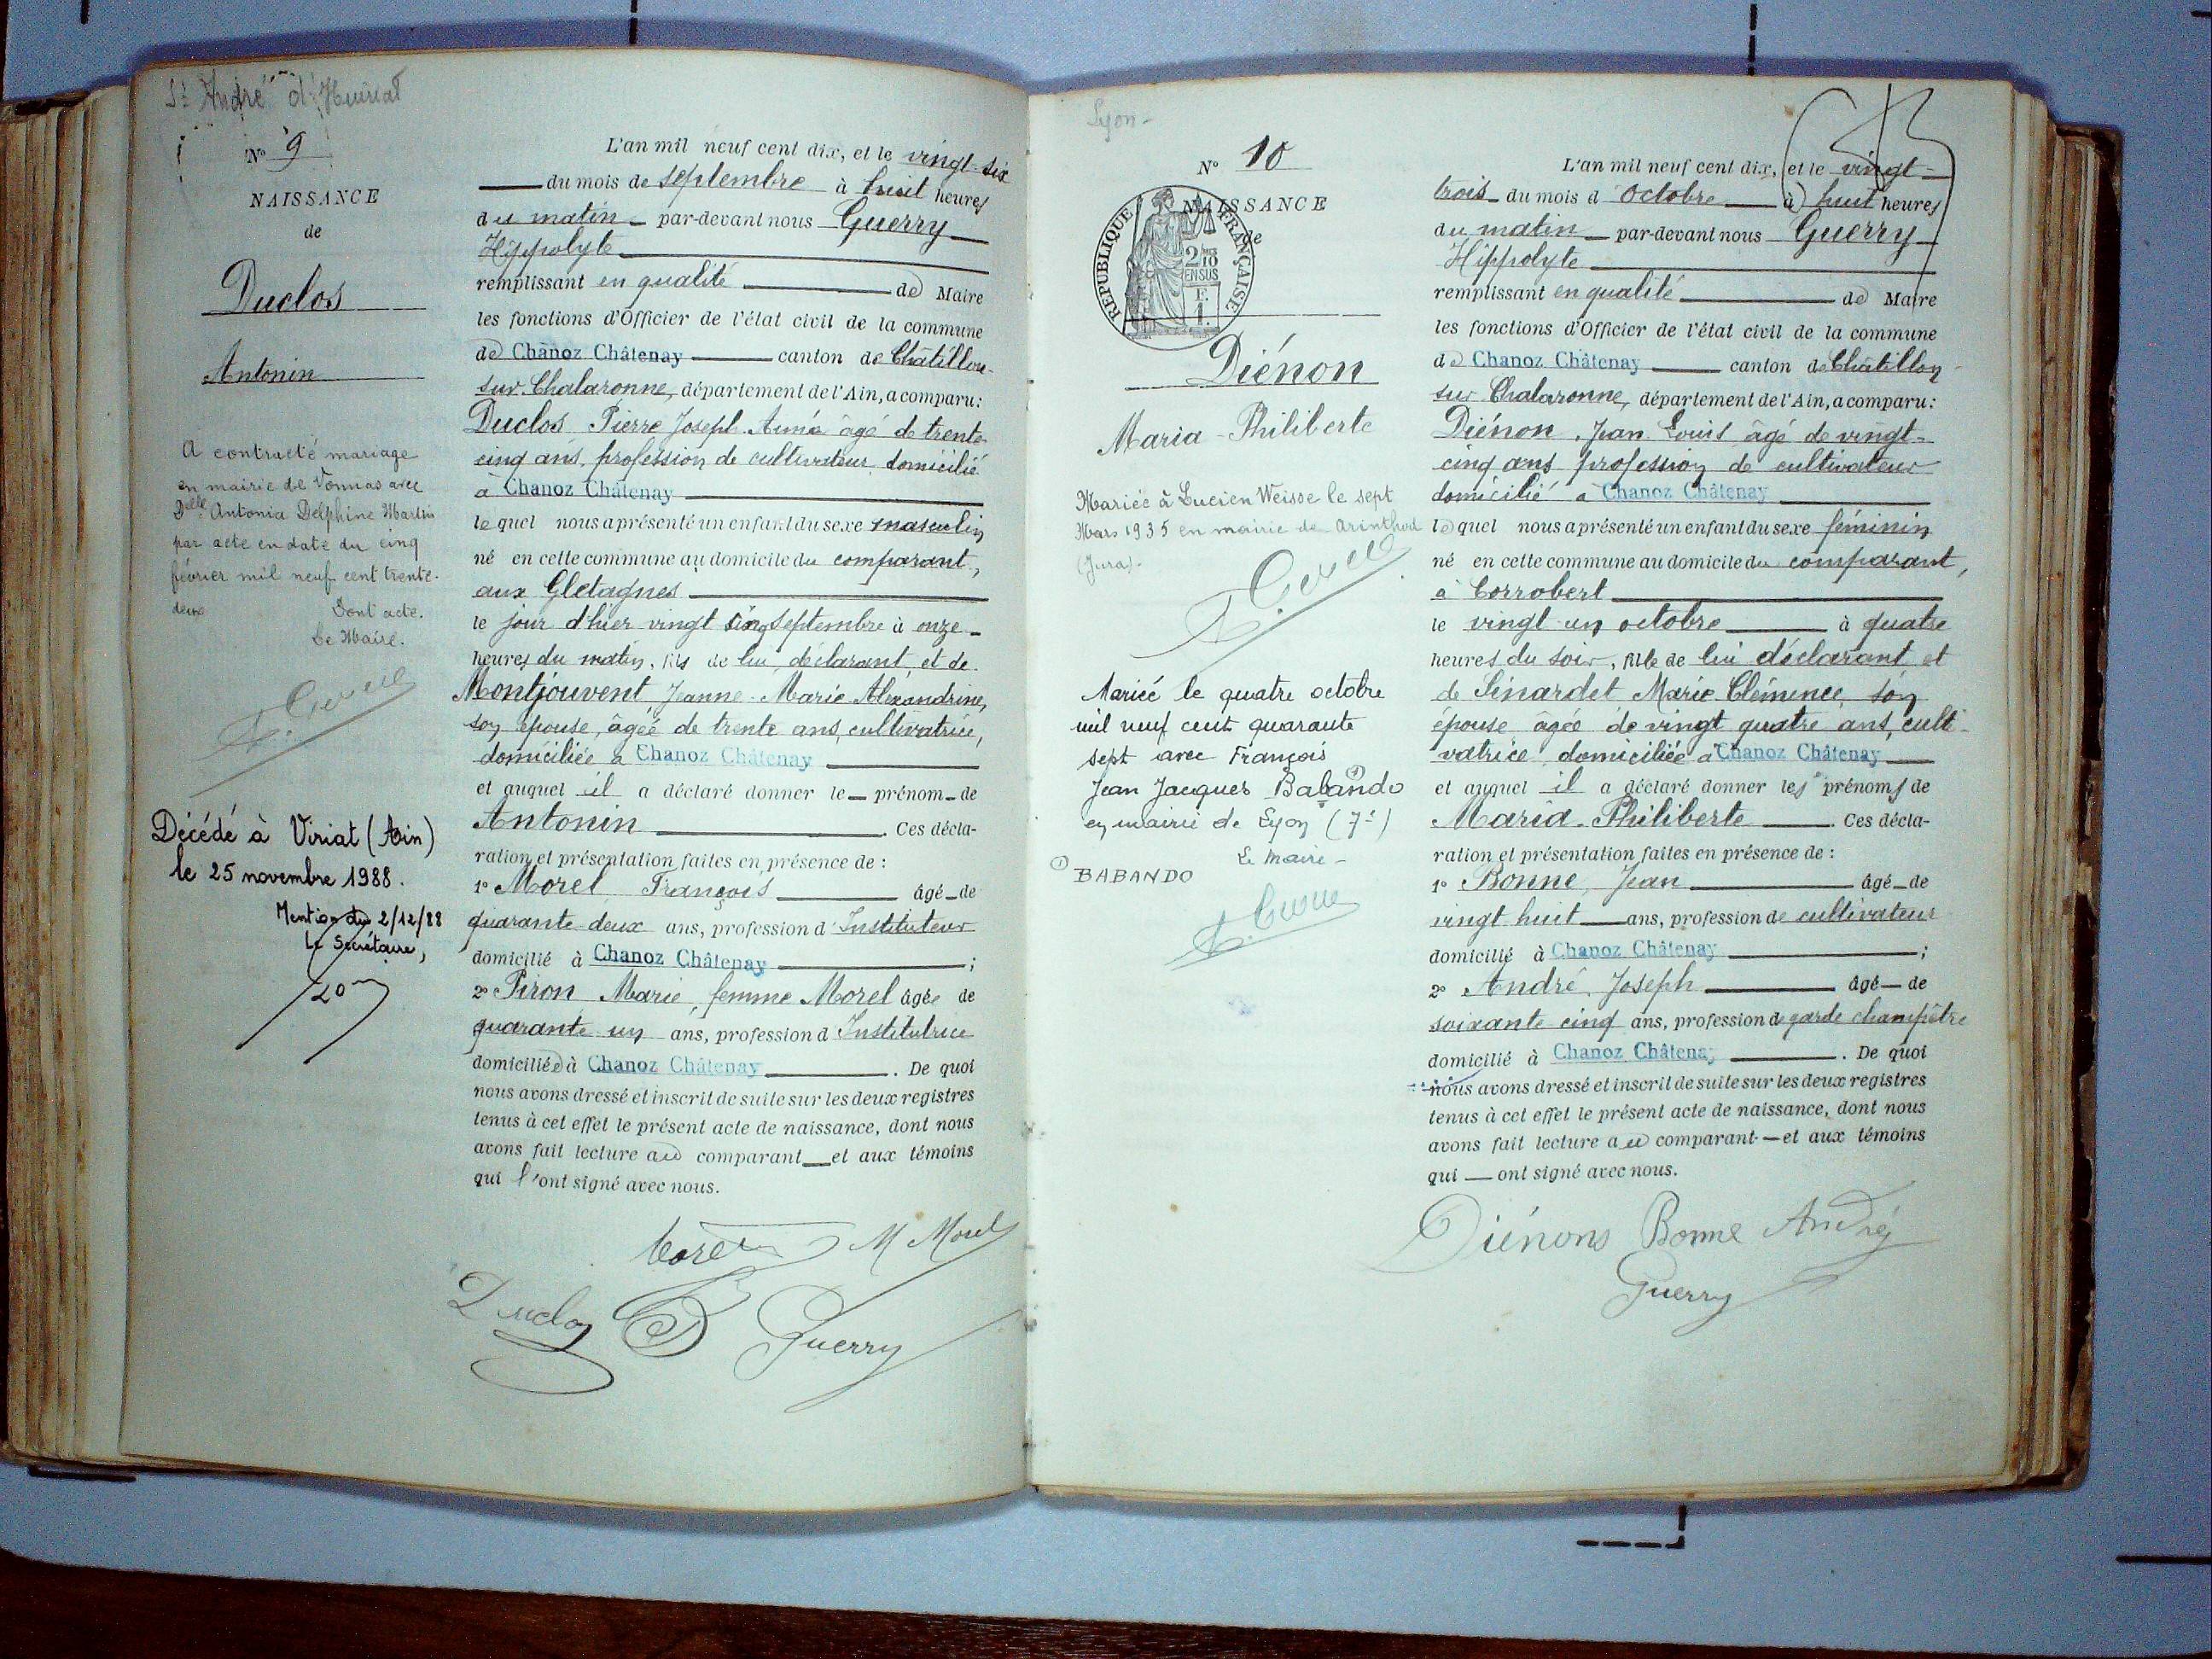 St André d'Huiriat
N° 9
NAISSANCE
de
Duclos
Antonin
A contracté mariage
en mairie de Vonnas avec
Delle Antonia Delphine Martin
par acte en date du cinq
février mil neuf cent trente-
deux Dont acte.
Le Maire.
Décédé à Viriat (Ain)
le 25 novembre 1988.
Mention du 2/12/88
Le Secrétaire,
L'an mil neuf cent dix, et le vingt-six
du mois de septembre à huit heures
du matin par-devant nous Guerry
Hippolyte
remplissant en qualité de Maire
les fonctions d'Officier de l'état civil de la commune
de Chanoz Châtenay canton de Châtillon-
sur Chalaronne, département de l'Ain, a comparu:
Duclos Pierre Joseph Aimé âgé de trente-
cinq ans, profession de cultivateur domicilié
à Chanoz Châtenay
lequel nous a présenté un enfant du sexe masculin
né en cette commune au domicile du comparant,
aux Gletagnes
le jour d'hier vingt cinq septembre à onze
heures du matin, fils de lui déclarant et de
Montjouvent Jeanne-Marie Alexandrine,
son épouse, âgée de trente ans, cultivatrice,
domiciliée à Chanoz Châtenay
et auquel il a déclaré donner le prénom de
Antonin. Ces décla-
ration et présentation faites en présence de :
1° Morel François âgé de
quarante-deux ans, profession d'Instituteur
domicilié à Chanoz Châtenay ;
2° Piron Marie, femme Morel âgée de
quarante un ans, profession d'Institutrice
domiciliée à Chanoz Châtenay. De quoi
nous avons dressé et inscrit de suite sur les deux registres
tenus à cet effet le présent acte de naissance, dont nous
avons fait lecture au comparant et aux témoins
qui l'ont signé avec nous.
Morel M Morel
Duclos Guerry
Lyon-
N° 10
NAISSANCE
de
RÉPUBLIQUE FRANÇAISE
2/10
EN SUS
Diénon
Maria-Philiberte
Mariée à Lucien Weisse le sept
Mars 1935 en mairie de Arinthod
(Jura).
Mariée le quatre octobre
mil neuf cent quarante
sept avec François
Jean Jacques Babando
en mairie de Lyon (7e)
Le Maire-
① BABANDO
L'an mil neuf cent dix, et le vingt-
trois du mois d'Octobre à huit heures
du matin par-devant nous Guerry
Hippolyte
remplissant en qualité de Maire
les fonctions d'Officier de l'état civil de la commune
de Chanoz Châtenay canton de Châtillon-
sur Chalaronne, département de l'Ain, a comparu:
Diénon, Jean Louis âgé de vingt-
cinq ans profession de cultivateur
domicilié à Chanoz Châtenay
lequel nous a présenté un enfant du sexe féminin
né en cette commune au domicile du comparant,
à Corrobert
le vingt-un octobre à quatre
heures du soir, fille de lui déclarant et
de Sénardet Marie Clémence, son
épouse âgée de vingt quatre ans, culti-
vatrice domiciliée à Chanoz Châtenay
et auquel il a déclaré donner les prénoms de
Maria-Philiberte. Ces décla-
ration et présentation faites en présence de :
1° Bonne, Jean âgé de
vingt huit ans, profession de cultivateur
domicilié à Chanoz Châtenay ;
2° André, Joseph âgé de
soixante cinq ans, profession de garde champêtre
domicilié à Chanoz Châtenay. De quoi
nous avons dressé et inscrit de suite sur les deux registres
tenus à cet effet le présent acte de naissance, dont nous
avons fait lecture au comparant et aux témoins
qui ont signé avec nous.
Diénons Bonne André
Guerry